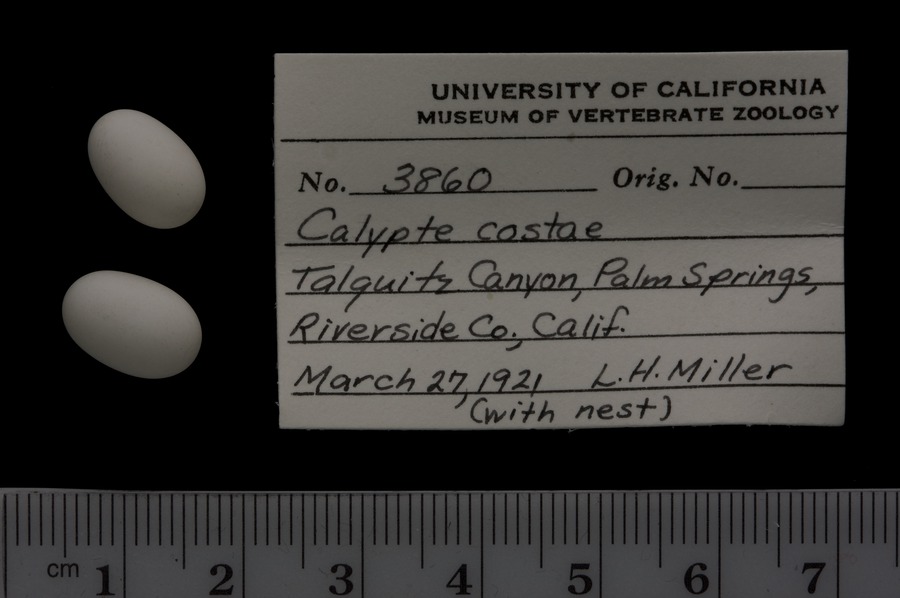 UNIVERSITY OF CALIFORNIA
MUSEUM OF VERTEBRATE ZOOLOGY
No. 3860 Orig. No.
Calypte costae
Talquitz Canyon, Palm Springs,
Riverside Co., Calif.
March 27, 1921 L.H. Miller
(with nest)
cm 1 2 3 4 5 6 7